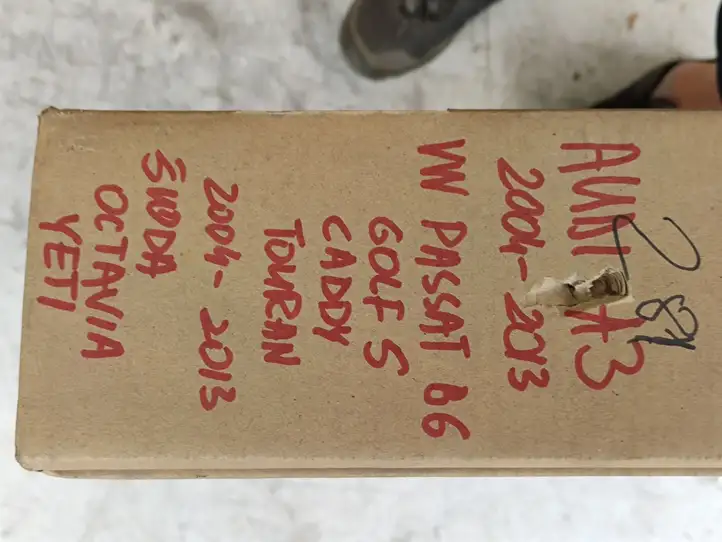 AUDI A3
2004-2013
VW PASSAT B6
GOLF 5
CADDY
TOURAN
2004-2013
ŠKODA
OCTAVIA
YETI